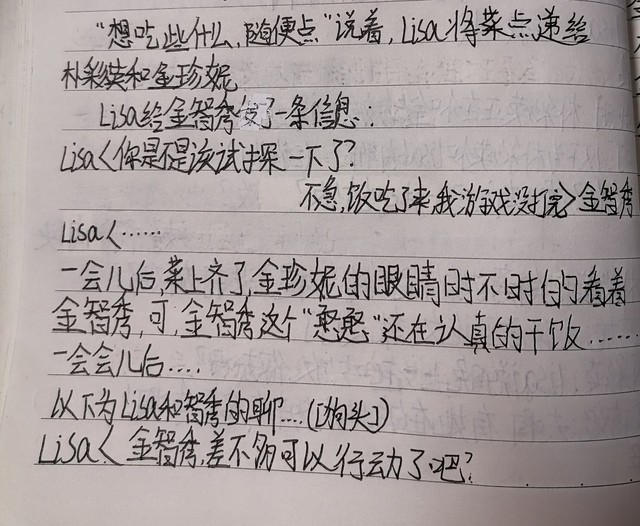 “想吃些什么,随便点”说着,Lisa将菜点递给
朴彩英和金珍妮
Lisa给金智秀发了一条信息:
Lisa<你是不是该试探一下了?
不急,饭吃了来,我游戏没打完>金智秀
Lisa<……
一会儿后,菜上齐了,金珍妮的眼睛时不时的看着
金智秀,可,金智秀这个“憨憨”还在认真的干饭……
一会会儿后....
以下为Lisa和智秀的聊...([狗头])
Lisa<金智秀,差不多可以行动了吧?